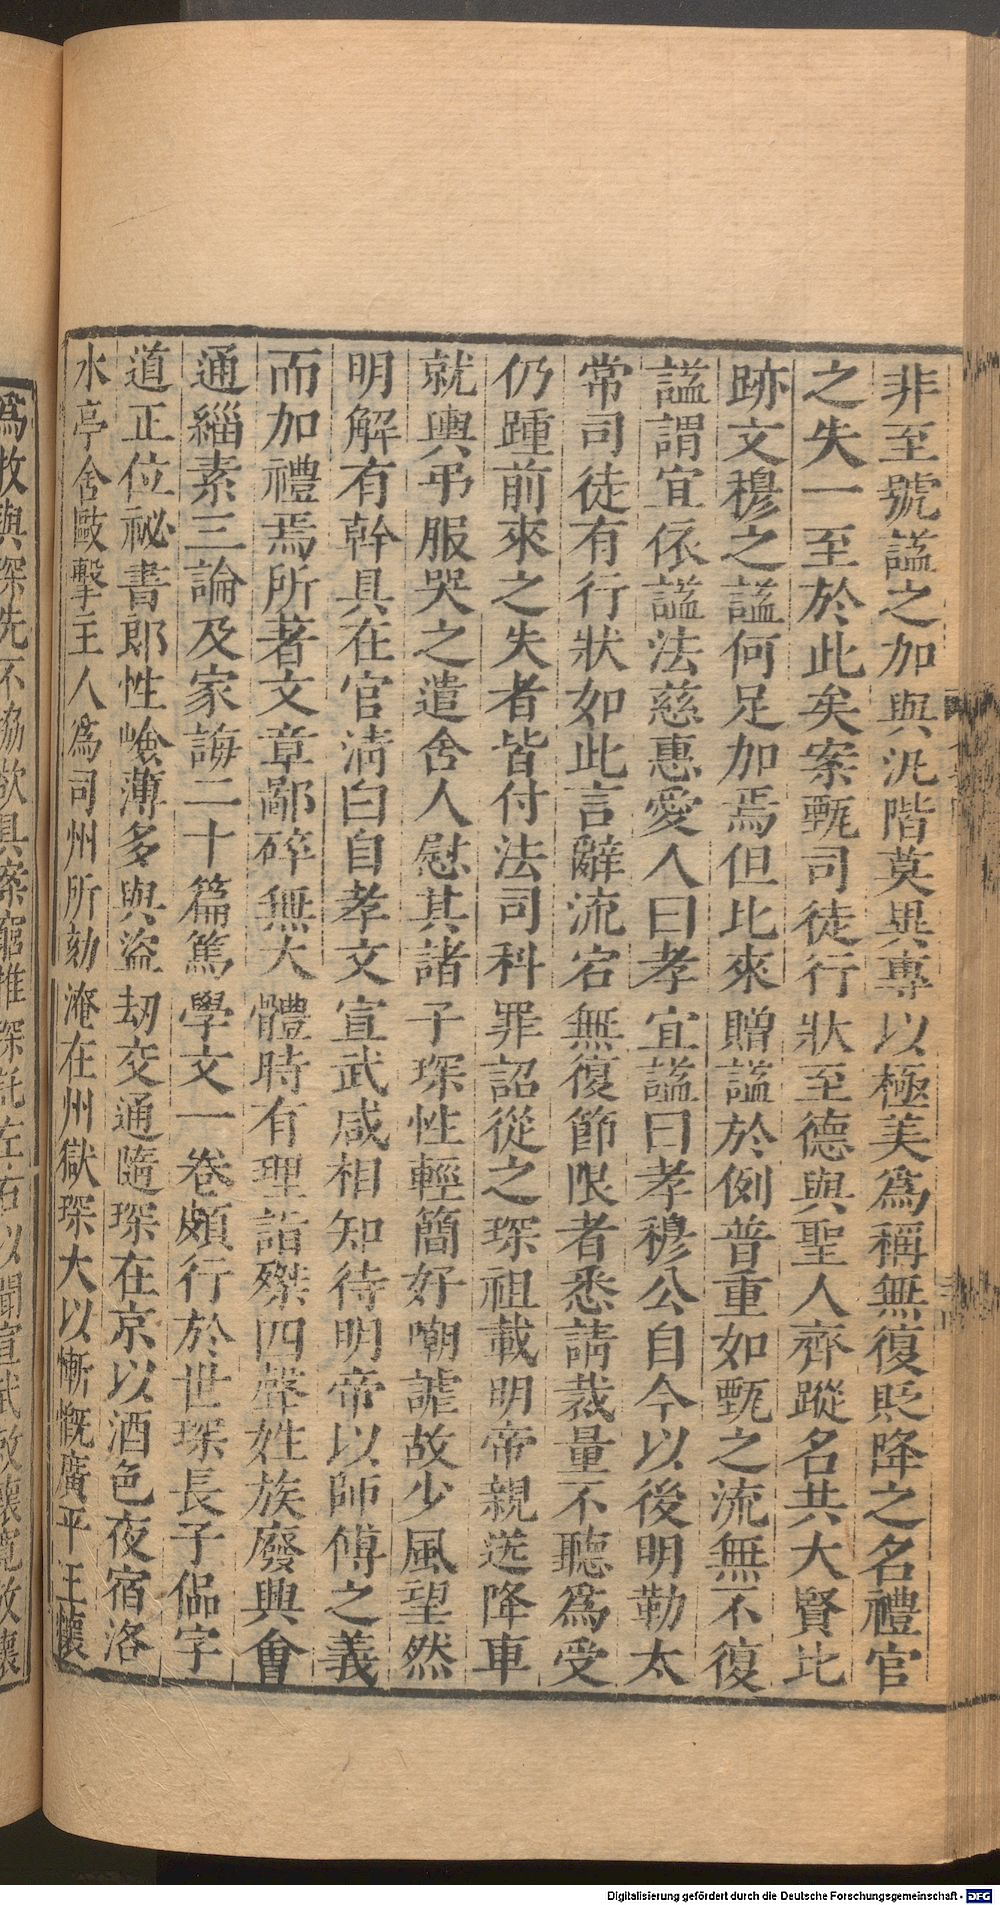 非至號諡之加與汎階莫異專以極美爲稱無復貶降之名禮官
之失一至於此矣案甄司徒行狀至德與聖人齊蹤名共大賢比
跡文穆之諡何足加焉但比來贈諡於例普重如甄之流無不復
諡謂宜依諡法慈惠愛人曰孝宜諡曰孝穆公自今以後明勒太
常司徒有行狀如此言辭流宕無復節限者悉請裁量不聽爲受
仍踵前來之失者皆付法司科罪詔從之琛祖載明帝親送降車
就輿弔服哭之遣舍人慰其諸子琛性輕簡好嘲謔故少風望然
明解有幹具在官清白自孝文宣武咸相知待明帝以師傅之義
而加禮焉所著文章鄙碎無大體時有理詣磔四聲姓族廢興會
通緇素三論及家誨二十篇篤學文一卷頗行於世琛長子侃字
道正位祕書郎性嶮薄多與盜刼交通隨琛在京以酒色夜宿洛
水亭舍毆擊主人爲司州所劾淹在州獄琛大以慚慨廣平王懷
爲牧與琛先不協欲具案窮推琛託左右以聞宣武敕懷寬放懷
Digitalisierung gefördert durch die Deutsche Forschungsgemeinschaft - DFG